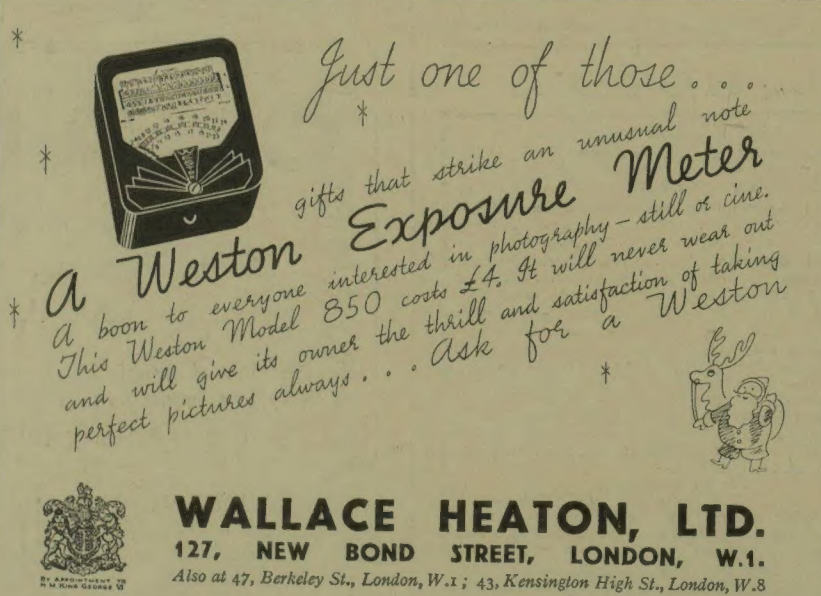 Just one of those . . .
gifts that strike an unusual note
A Weston Exposure Meter
A boon to everyone interested in photography — still or cine.
This Weston Model 850 costs £4. It will never wear out
and will give its owner the thrill and satisfaction of taking
perfect pictures always . . . Ask for a Weston
WALLACE HEATON, LTD.
127, NEW BOND STREET, LONDON, W.1.
Also at 47, Berkeley St., London, W.1 ; 43, Kensington High St., London, W.8
BY APPOINTMENT TO
H.M. KING GEORGE VI